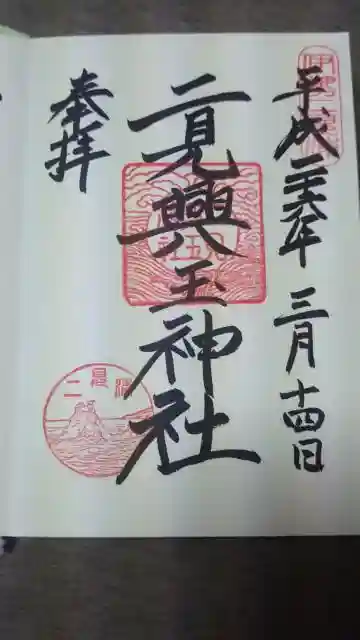 平成二十六年 三月 十四日
二見興玉神社
奉拝
二見浦